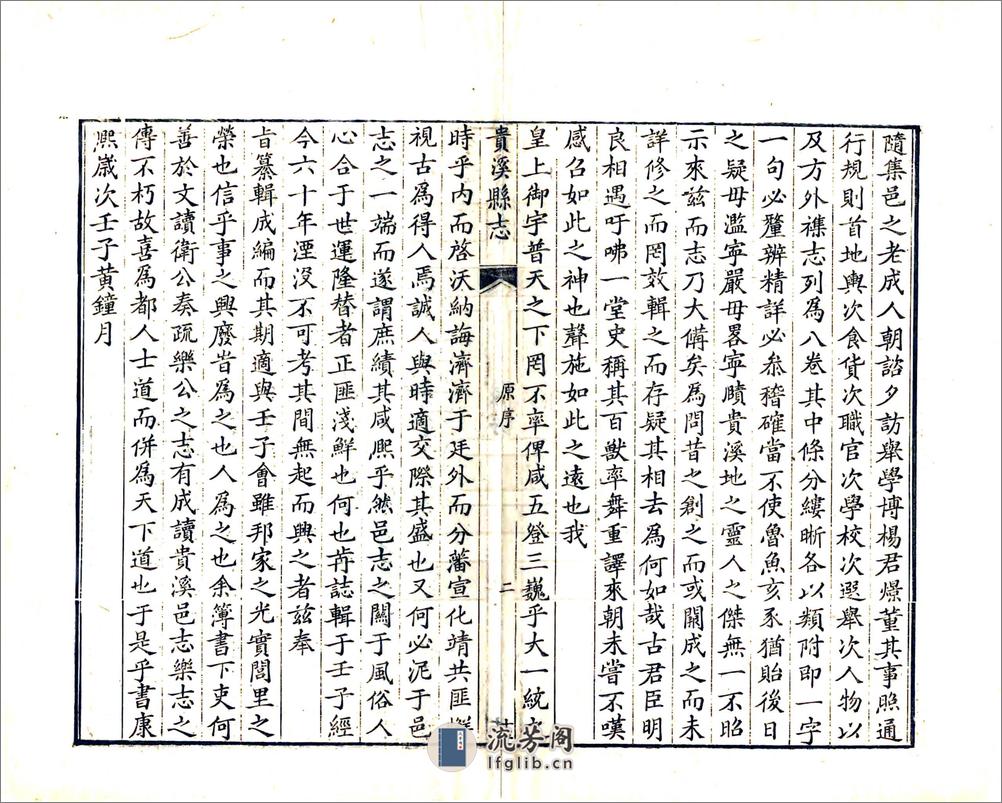 隨集邑之老成人朝諮夕訪舉學博楊君燝董其事照通
行規則首地輿次食貨次職官次學校次選舉次人物以
及方外襍志列為八卷其中條分縷晰各以類附即一字
一句必釐辨精詳必叅稽確當不使魯魚亥豕猶貽後日
之疑毋濫寧嚴毋畧寧賾貴溪地之靈人之傑無一不昭
示來兹而志乃大備矣為問昔之創之而或闕成之而未
詳修之而罔效輯之而存疑其相去為何如哉古君臣明
良相遇吁咈一堂史稱其百獸率舞重譯來朝未嘗不嘆
感召如此之神也聲施如此之遠也我
皇上御宇普天之下罔不率俾咸五登三巍乎大一統之
貴溪縣志
原序
二
時乎内而啓沃納誨濟濟于廷外而分藩宣化靖共匪懈
視古為得人焉誠人與時適交際其盛也又何必泥于邑
志之一端而遂謂庶績其咸熈乎然邑志之關于風俗人
心合于世運隆替者正匪淺鮮也何也肯誌輯于壬子經
今六十年湮没不可考其間無起而興之者兹奉
旨纂輯成編而其期適與壬子會雖邦家之光實閭里之
榮也信乎事之興廢昔為之也人為之也余簿書下吏何
善於文讀衛公奏疏樂公之志有成讀貴溪邑志樂志之
傳不朽故喜為都人士道而併為天下道也于是乎書康
熈歲次壬子黃鐘月
流芳阁
lfglib.cn